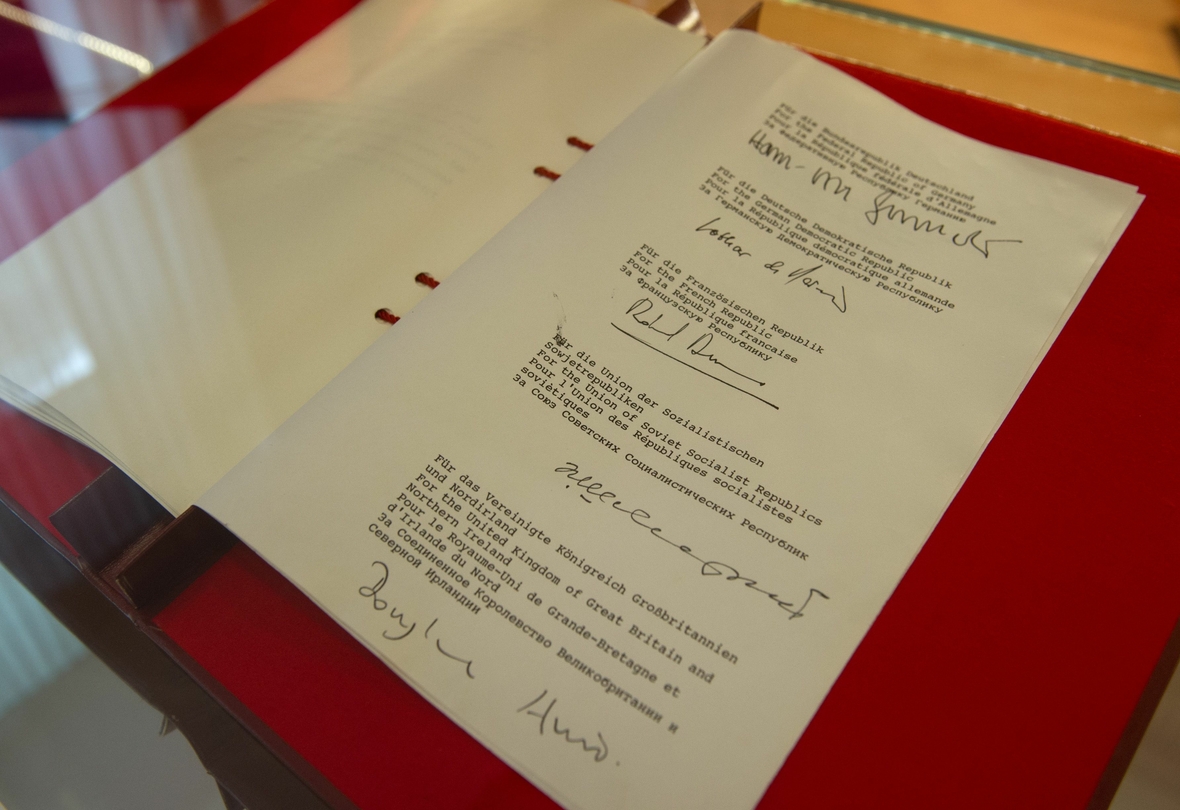 Für die Bundesrepublik Deutschland
For the Federal Republic of Germany
Pour la République fédérale d'Allemagne
За Федеративную Республику Германию
Für die Deutsche Demokratische Republik
For the German Democratic Republic
Pour la République démocratique allemande
За Германскую Демократическую Республику
Lothar de
Für die Französischen Republik
For the French Republic
Pour la République francaise
За Французскую Республику
Für die Union der Sozialistischen
Sowjetrepubliken
For the Union of Soviet Socialist Republics
Pour l'Union des Républiques socialistes
soviétiques
За Союз Советских Социалистических Республик
Für das Vereinigte Königreich Großbritannien
und Nordirland
For the United Kingdom of Great Britain and
Northern Ireland
Pour le Royaume-Uni de Grande-Bretagne et
d'Irlande du Nord
За Соединенное Королевство Великобритании и
Северной Ирландии
Douglas Hurd.